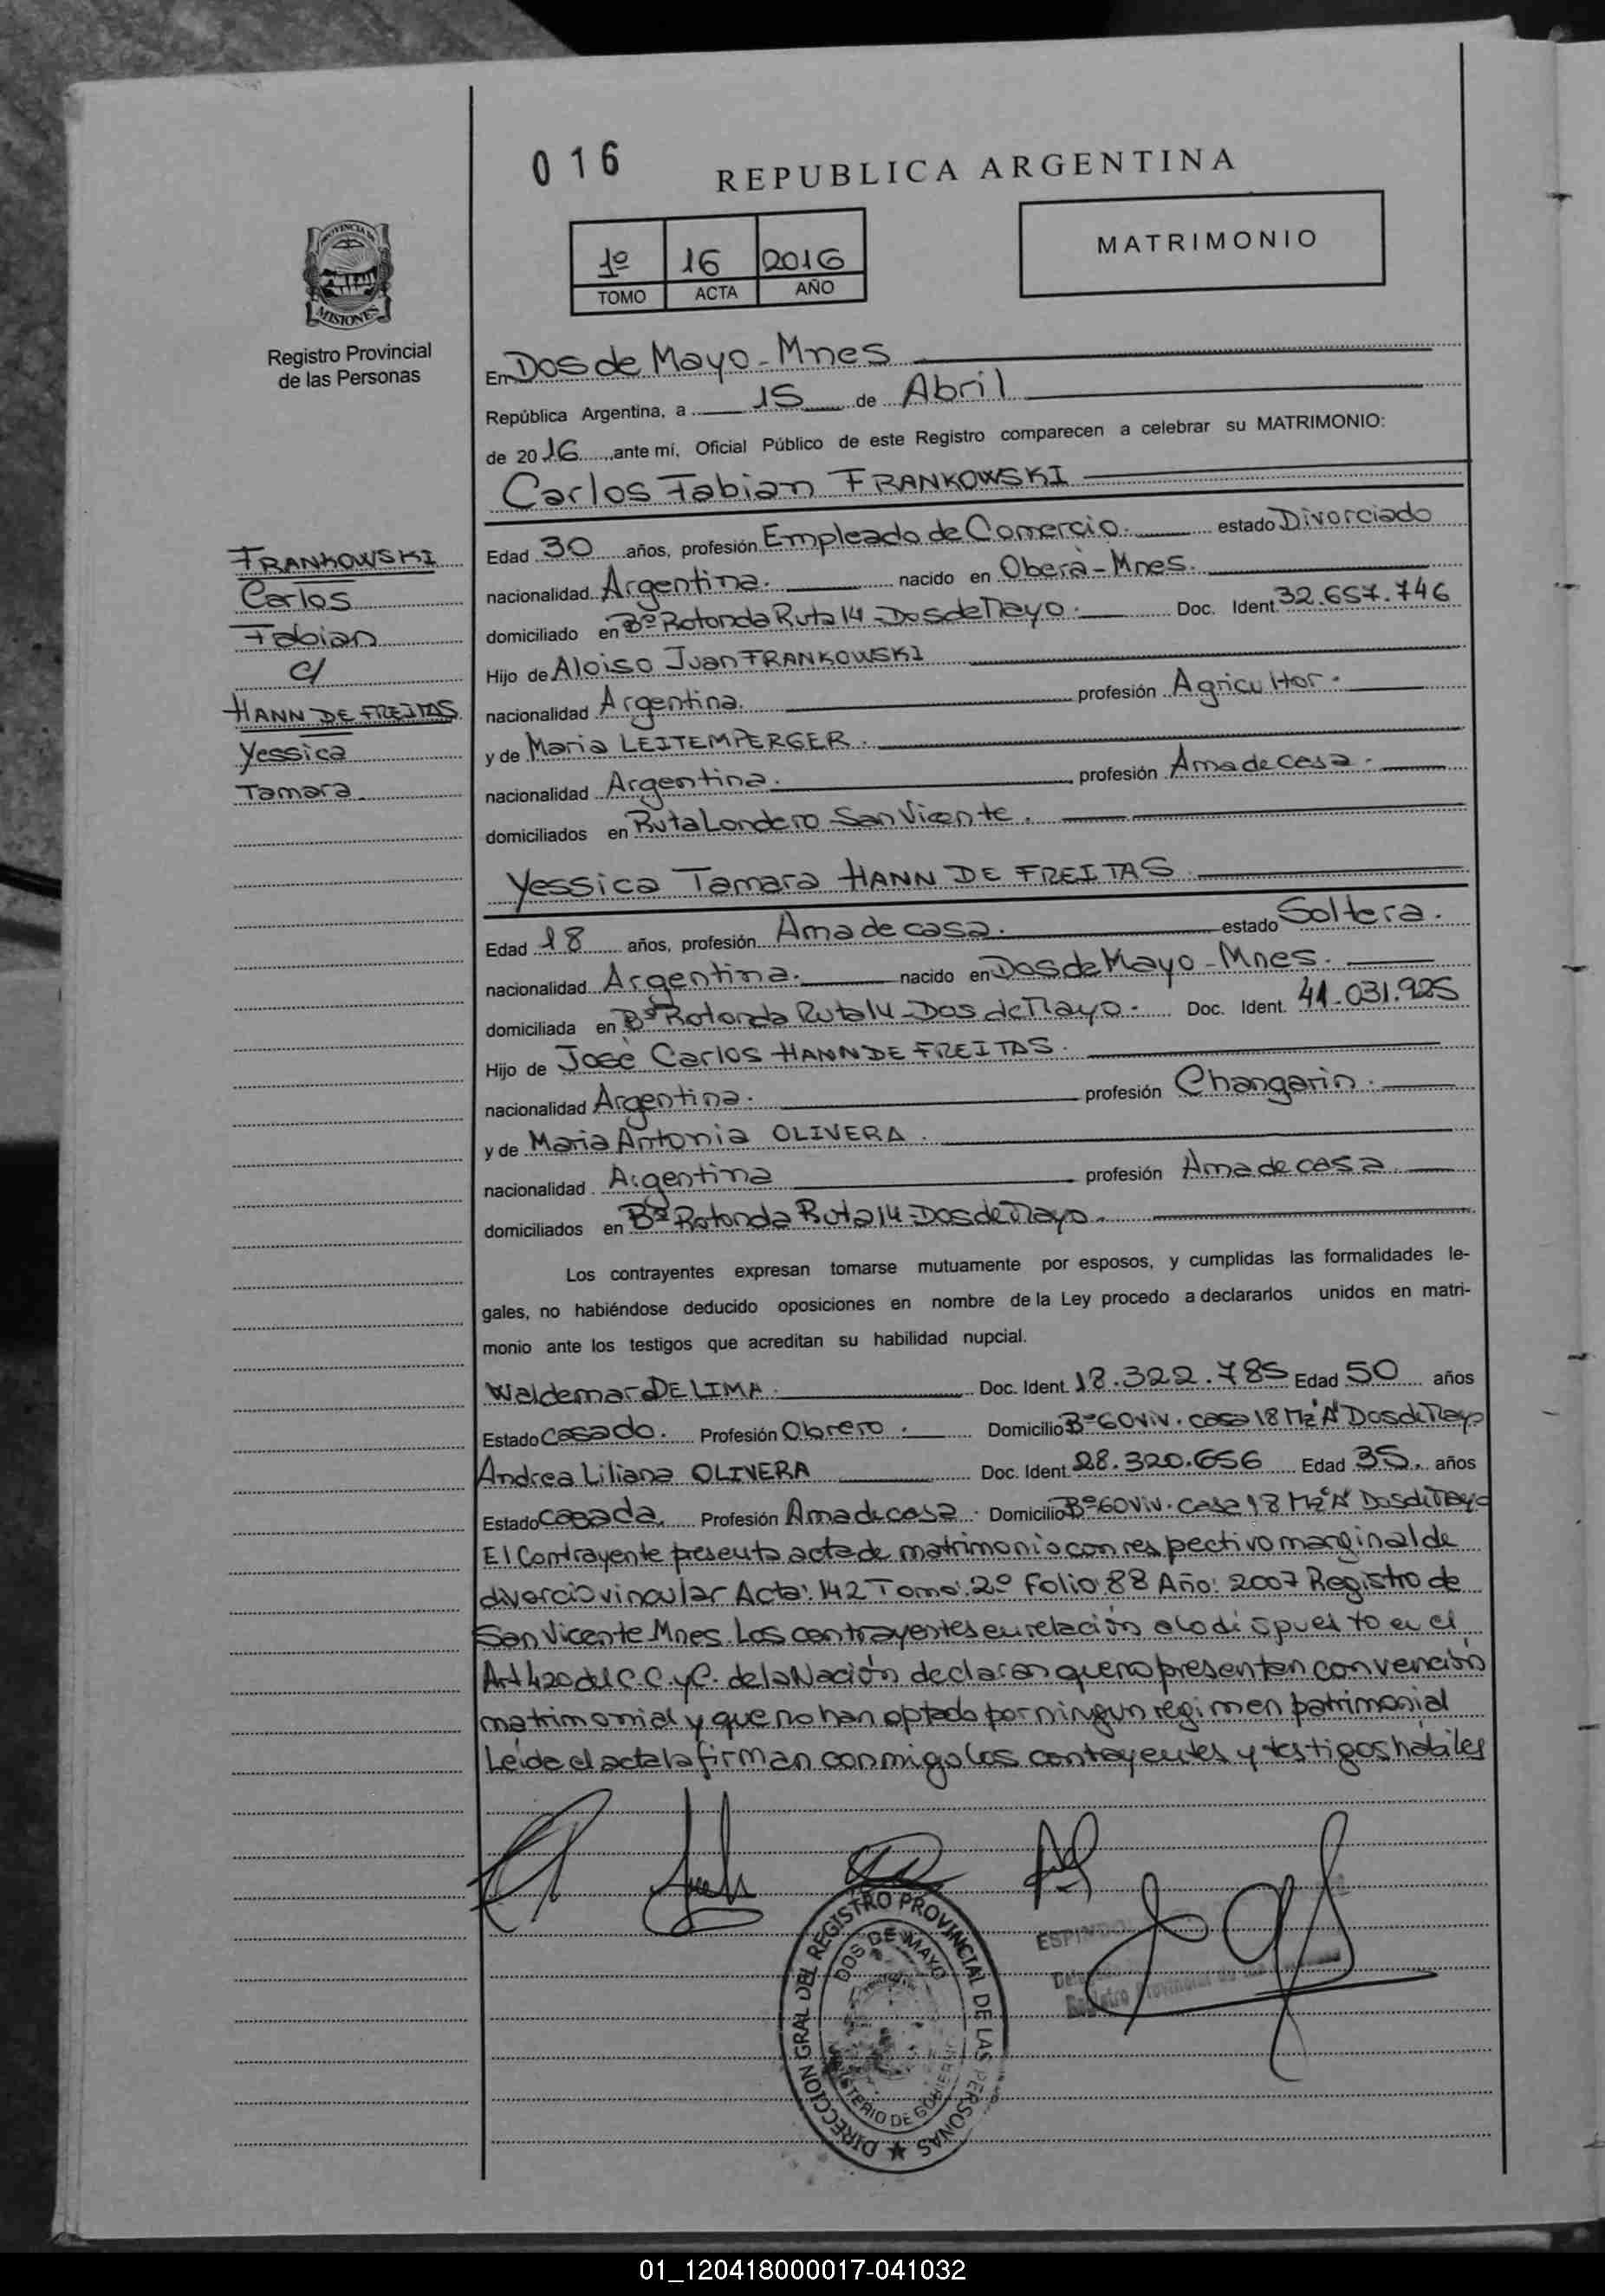 016
REPUBLICA ARGENTINA
1º 16 2016
TOMO ACTA AÑO
MATRIMONIO
PROVINCIA DE
MISIONES
Registro Provincial
de las Personas
En Dos de Mayo - Mnes
República Argentina, a 15 de Abril
de 2016, ante mí, Oficial Público de este Registro comparecen a celebrar su MATRIMONIO:
Carlos Fabian FRANKOWSKI
FRANKOWSKI
Carlos
Fabian
c/
HANN DE FREITAS
Yessica
Tamara
Edad 30 años, profesión Empleado de Comercio. estado Divorciado
nacionalidad Argentina. nacido en Oberà - Mnes.
domiciliado en Bº Rotonda Ruta 14 - Dos de Mayo. Doc. Ident. 32.657.746
Hijo de Aloiso Juan FRANKOWSKI
nacionalidad Argentina. profesión Agricultor.
y de Maria LEITEMPERGER.
nacionalidad Argentina. profesión Ama de casa.
domiciliados en Ruta Londero San Vicente.
Yessica Tamara HANN DE FREITAS.
Edad 18 años, profesión Ama de casa. estado Soltera.
nacionalidad Argentina. nacido en Dos de Mayo - Mnes.
domiciliada en Bº Rotonda Ruta 14 - Dos de Mayo. Doc. Ident. 41.031.925
Hijo de Josè Carlos HANN DE FREITAS.
nacionalidad Argentina. profesión Changarin.
y de Maria Antonia OLIVERA.
nacionalidad Argentina profesión Ama de casa
domiciliados en Bº Rotonda Ruta 14 - Dos de Mayo.
Los contrayentes expresan tomarse mutuamente por esposos, y cumplidas las formalidades le-
gales, no habiéndose deducido oposiciones en nombre de la Ley procedo a declararlos unidos en matri-
monio ante los testigos que acreditan su habilidad nupcial.
Waldemar DE LIMA. Doc. Ident. 18.322.785 Edad 50 años
Estado Casado. Profesión Obrero. Domicilio Bº 60 viv. casa 18 Mz "A" Dos de Mayo
Andrea Liliana OLIVERA Doc. Ident. 28.320.656 Edad 35. años
Estado Casada. Profesión Ama de casa. Domicilio Bº 60 viv. casa 18 Mz "A" Dos de Mayo
El Contrayente presenta acta de matrimonio con respectivo marginal de
divorcio vincular Acta: 142 Tomo: 2º Folio: 88 Año: 2007 Registro de
San Vicente Mnes. Los contrayentes en relación a lo dispuesto en el
Art 420 del C.C.yC. de la Nación declaran que no presentan convención
matrimonial y que no han optado por ningun regimen patrimonial
Leida el acta la firman conmigo los contrayentes y testigos habiles
DIRECCION GRAL DEL REGISTRO PROVINCIAL DE LAS PERSONAS
DOS DE MAYO
MINISTERIO DE GOBIERNO
Registro Provincial de las
01_120418000017-041032